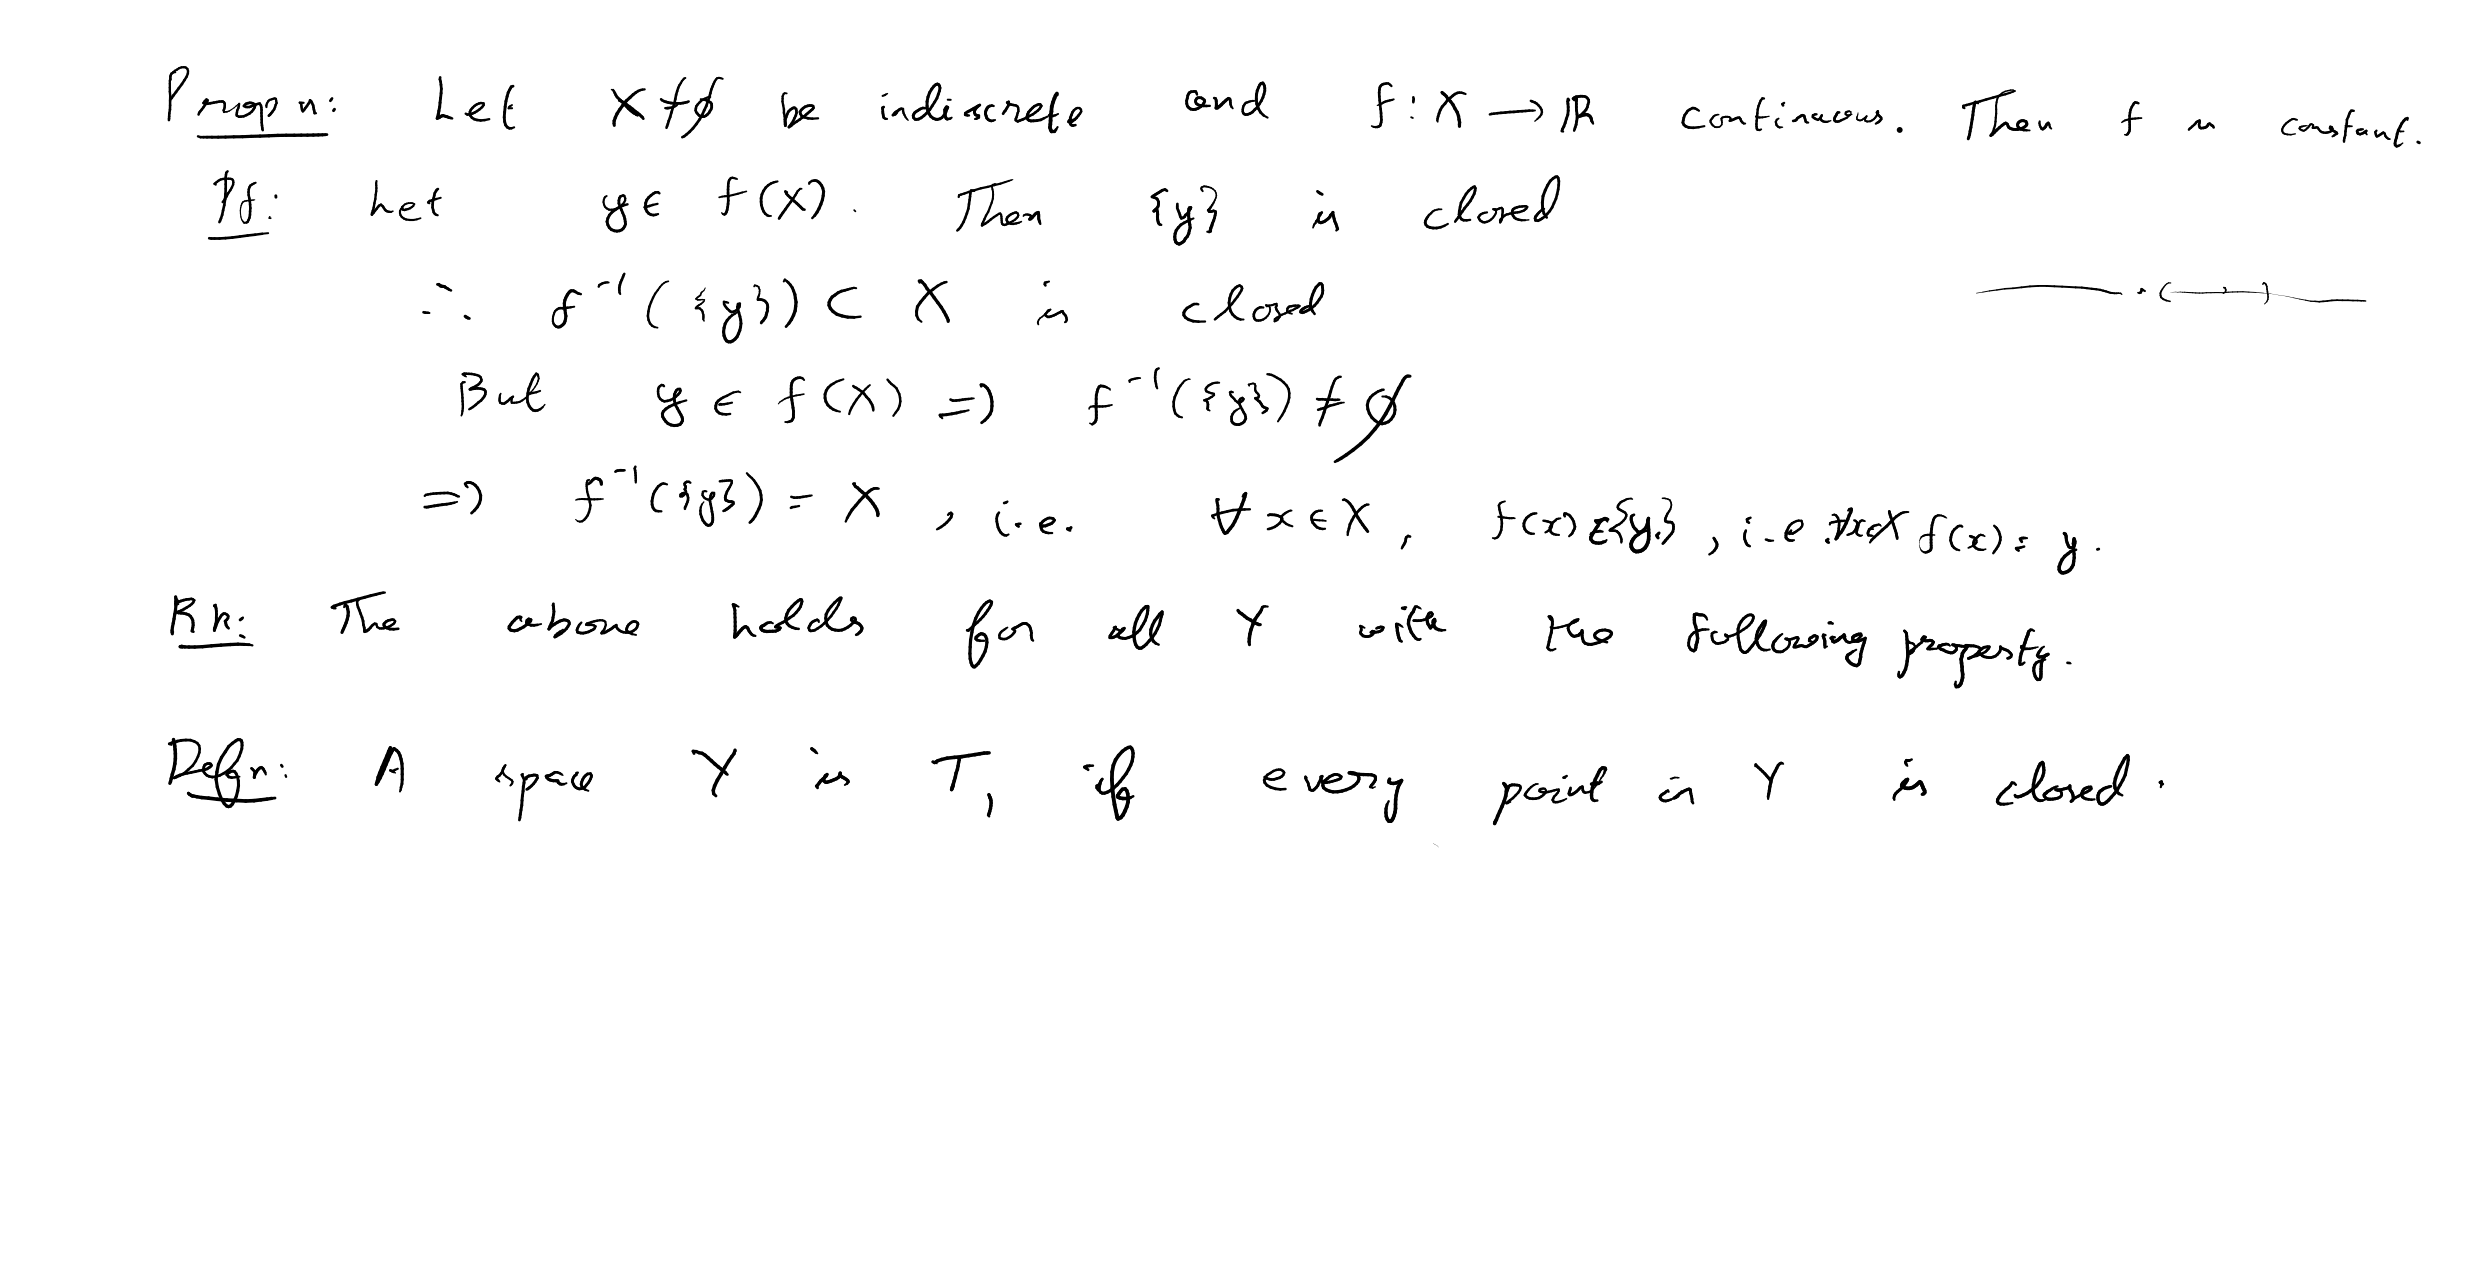 Propn: Let X ≠ ∅ be indiscrete and f: X → ℝ continuous. Then f is constant.
Pf: Let y ∈ f(X). Then {y} is closed
∴ f⁻¹({y}) ⊂ X is closed
But y ∈ f(X) => f⁻¹({y}) ≠ ∅
=> f⁻¹({y}) = X, i.e. ∀ x ∈ X, f(x) ∈ {y}, i.e. ∀x∈X f(x) = y.
Rk: The above holds for all Y with the following property.
Defn: A space Y is T₁ if every point in Y is closed.